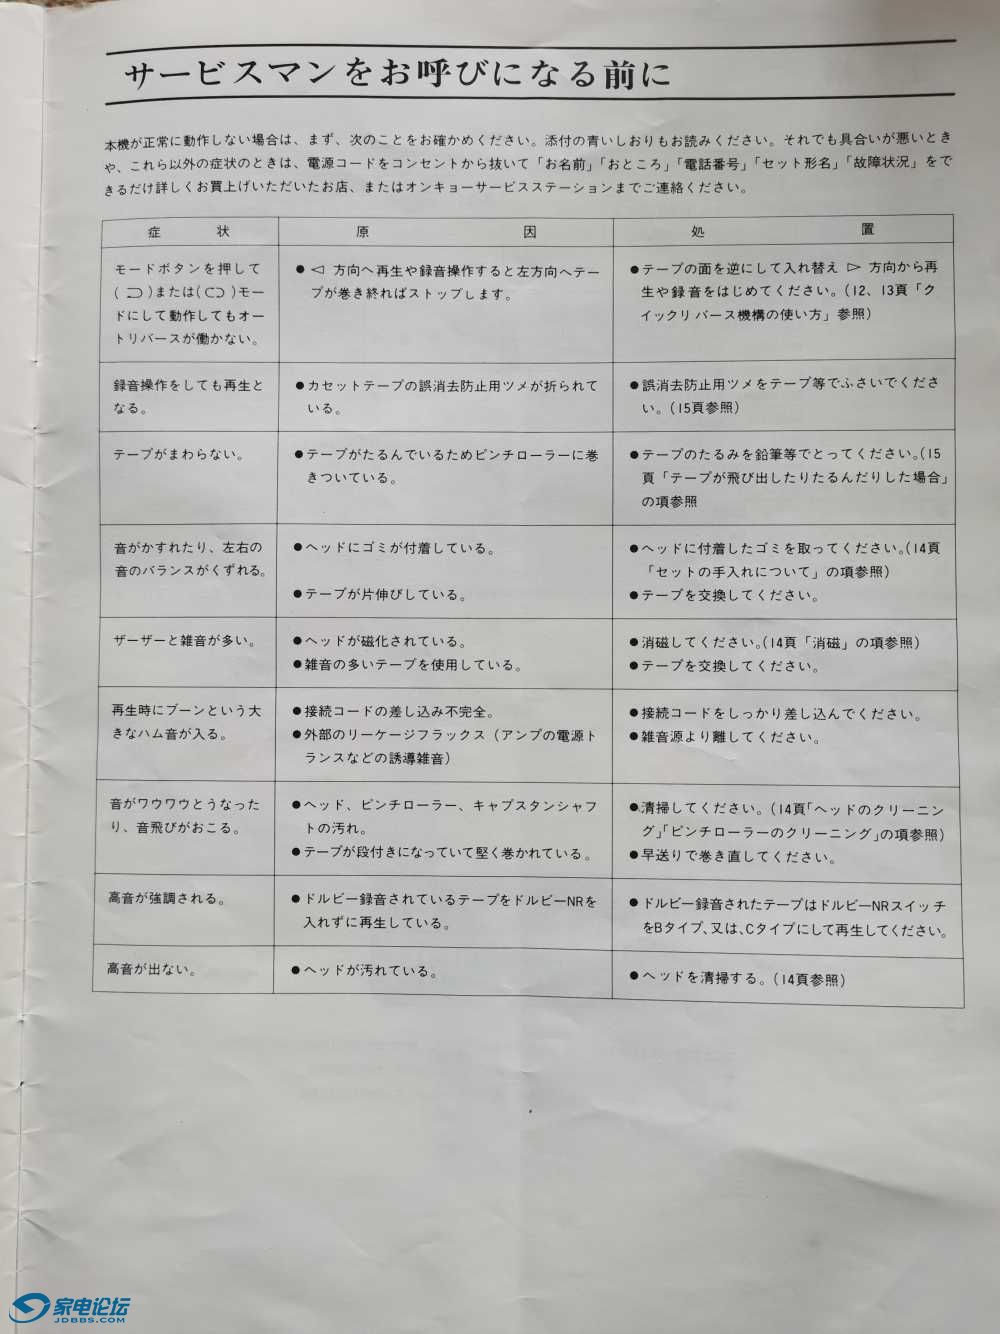 サービスマンをお呼びになる前に
本機が正常に動作しない場合は、まず、次のことをお確かめください。添付の青いしおりもお読みください。それでも具合いが悪いとき
や、これら以外の症状のときは、電源コードをコンセントから抜いて「お名前」「おところ」「電話番号」「セット形名」「故障状況」をで
きるだけ詳しくお買上げいただいたお店、またはオンキョーサービスステーションまでご連絡ください。
症状
原因
処置
モードボタンを押して
(⊐)または(⊂⊃)モー
ドにして動作してもオー
トリバースが働かない。
●◁ 方向へ再生や録音操作すると左方向へテー
プが巻き終ればストップします。
●テープの面を逆にして入れ替え ▷ 方向から再
生や録音をはじめてください。(12、13頁「ク
イックリバース機構の使い方」参照)
録音操作をしても再生と
なる。
●カセットテープの誤消去防止用ツメが折られて
いる。
●誤消去防止用ツメをテープ等でふさいでくださ
い。(15頁参照)
テープがまわらない。
●テープがたるんでいるためピンチローラーに巻
きついている。
●テープのたるみを鉛筆等でとってください。(15
頁「テープが飛び出したりたるんだりした場合」
の項参照
音がかすれたり、左右の
音のバランスがくずれる。
●ヘッドにゴミが付着している。
●テープが片伸びしている。
●ヘッドに付着したゴミを取ってください。(14頁
「セットの手入れについて」の項参照)
●テープを交換してください。
ザーザーと雑音が多い。
●ヘッドが磁化されている。
●雑音の多いテープを使用している。
●消磁してください。(14頁「消磁」の項参照)
●テープを交換してください。
再生時にブーンという大
きなハム音が入る。
●接続コードの差し込み不完全。
●外部のリーケージフラックス(アンプの電源ト
ランスなどの誘導雑音)
●接続コードをしっかり差し込んでください。
●雑音源より離してください。
音がワウワウとうなった
り、音飛びがおこる。
●ヘッド、ピンチローラー、キャプスタンシャフ
トの汚れ。
●テープが段付きになっていて堅く巻かれている。
●清掃してください。(14頁「ヘッドのクリーニン
グ」「ピンチローラーのクリーニング」の項参照)
●早送りで巻き直してください。
高音が強調される。
●ドルビー録音されているテープをドルビーNRを
入れずに再生している。
●ドルビー録音されたテープはドルビーNRスイッチ
をBタイプ、又は、Cタイプにして再生してください。
高音が出ない。
●ヘッドが汚れている。
●ヘッドを清掃する。(14頁参照)
家电论坛
JDBBS.COM